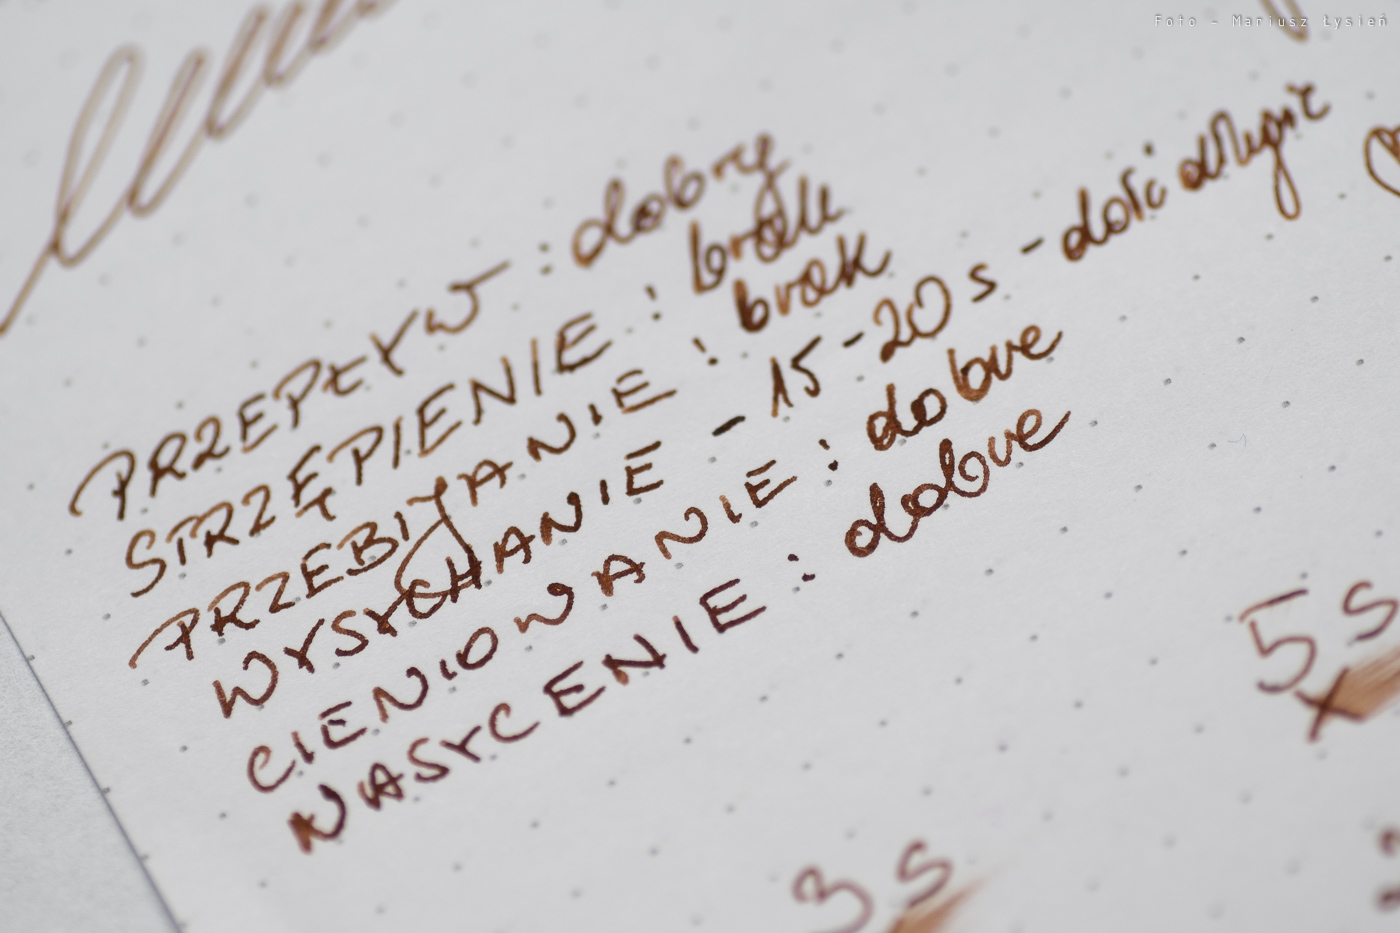 Foto - Mariusz Łysień
PRZEPŁYW : dobry
STRZĘPIENIE : brak
PRZEBIJANIE : brak
WYSYCHANIE - 15-20 s - dość długie
CIENIOWANIE : dobre
NASYCENIE : dobre
5 s
3 s